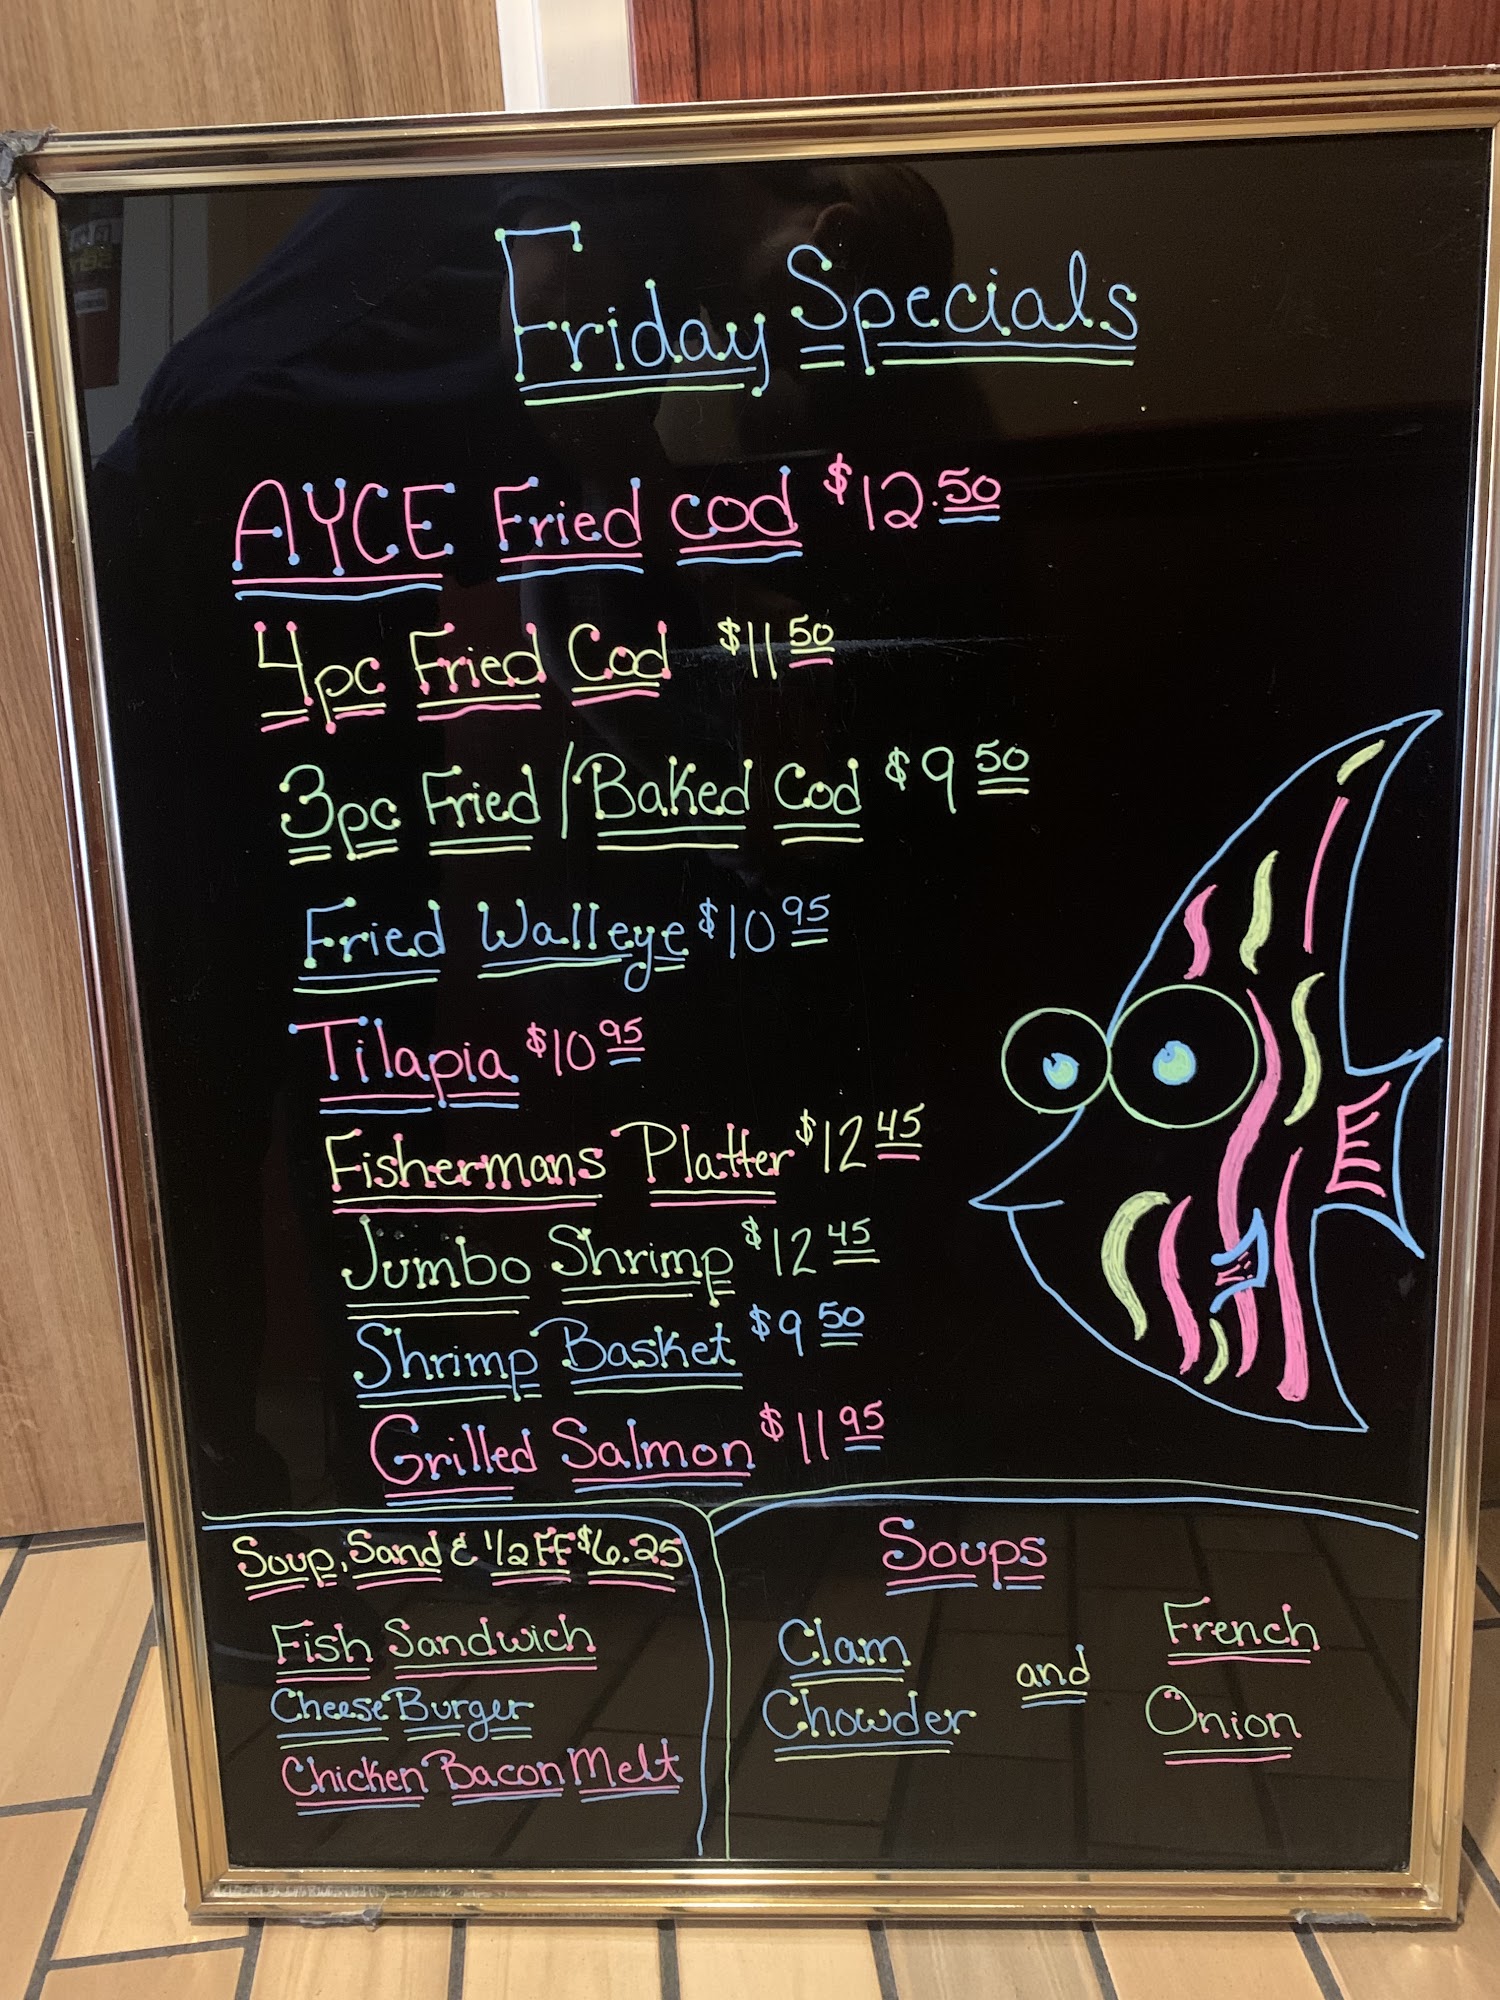 Friday Specials
AYCE Fried Cod $12.50
4pc Fried Cod $11 50
3pc Fried/Baked Cod $9 50
Fried Walleye $10 95
Tilapia $10 95
Fishermans Platter $12 45
Jumbo Shrimp $12 45
Shrimp Basket $9 50
Grilled Salmon $11 95
Soup, Sand & 1/2 FF $6.25
Fish Sandwich
Cheese Burger
Chicken Bacon Melt
Soups
Clam
Chowder
and
French
Onion